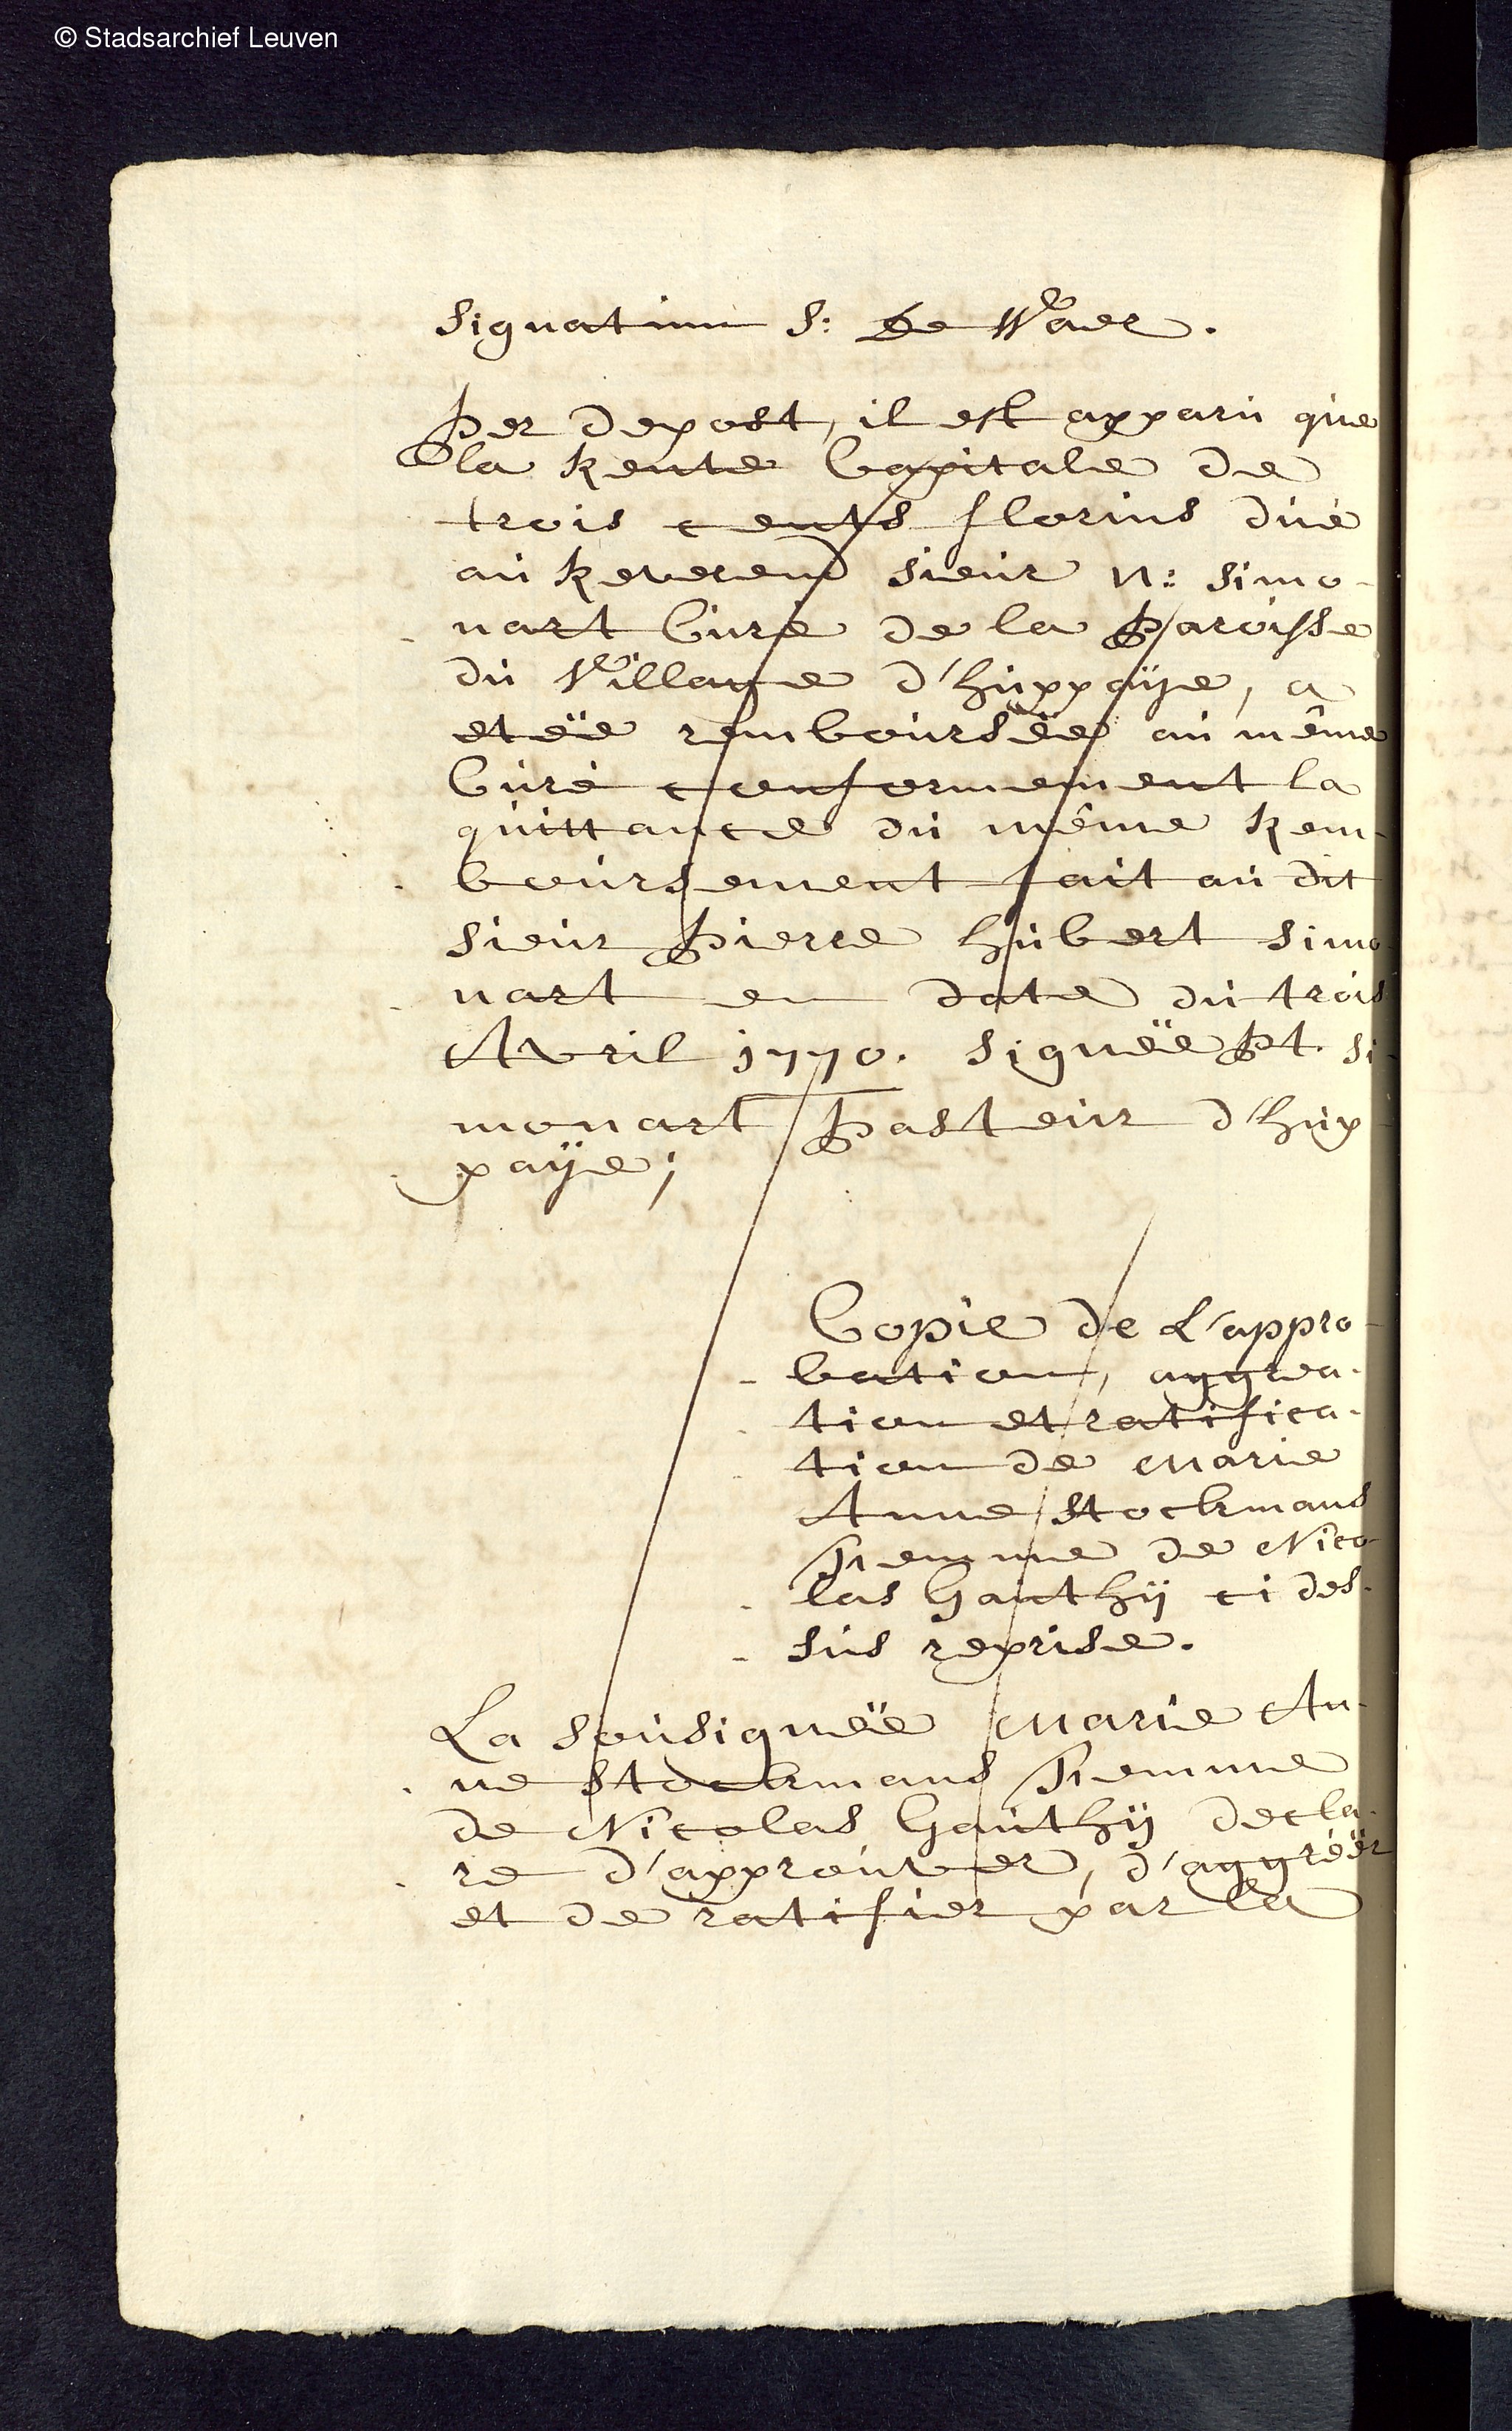 © Stadsarchief Leuven
Signatum S: De Waer.
Per depost, il est apparu que
la Rente Capitale de
trois cents florins due
au Reverend sieur N: Simo-
nart Curé de la Paroisse
du Village d'huppaÿe, a
etéë remboursëë au même
Curé conformement la
quittance du même Rem-
boursement fait au dit
sieur Pierre hubert Simo-
nart en date du trois
Avril 1770. signëë Pt. Si-
monart Pasteur d'hup
paÿe;
Copie de L'appro-
bation, aggrea-
tion et ratifica-
tion de Marie
Anne Stockmans
Femme de Nico-
las Gauthÿ ci des-
sus reprise.
La sousignëë Marie An-
ne Stockmans Femme
de Nicolas Gauthÿ decla-
re d'approuver, d'aggréër
et de ratifier par la